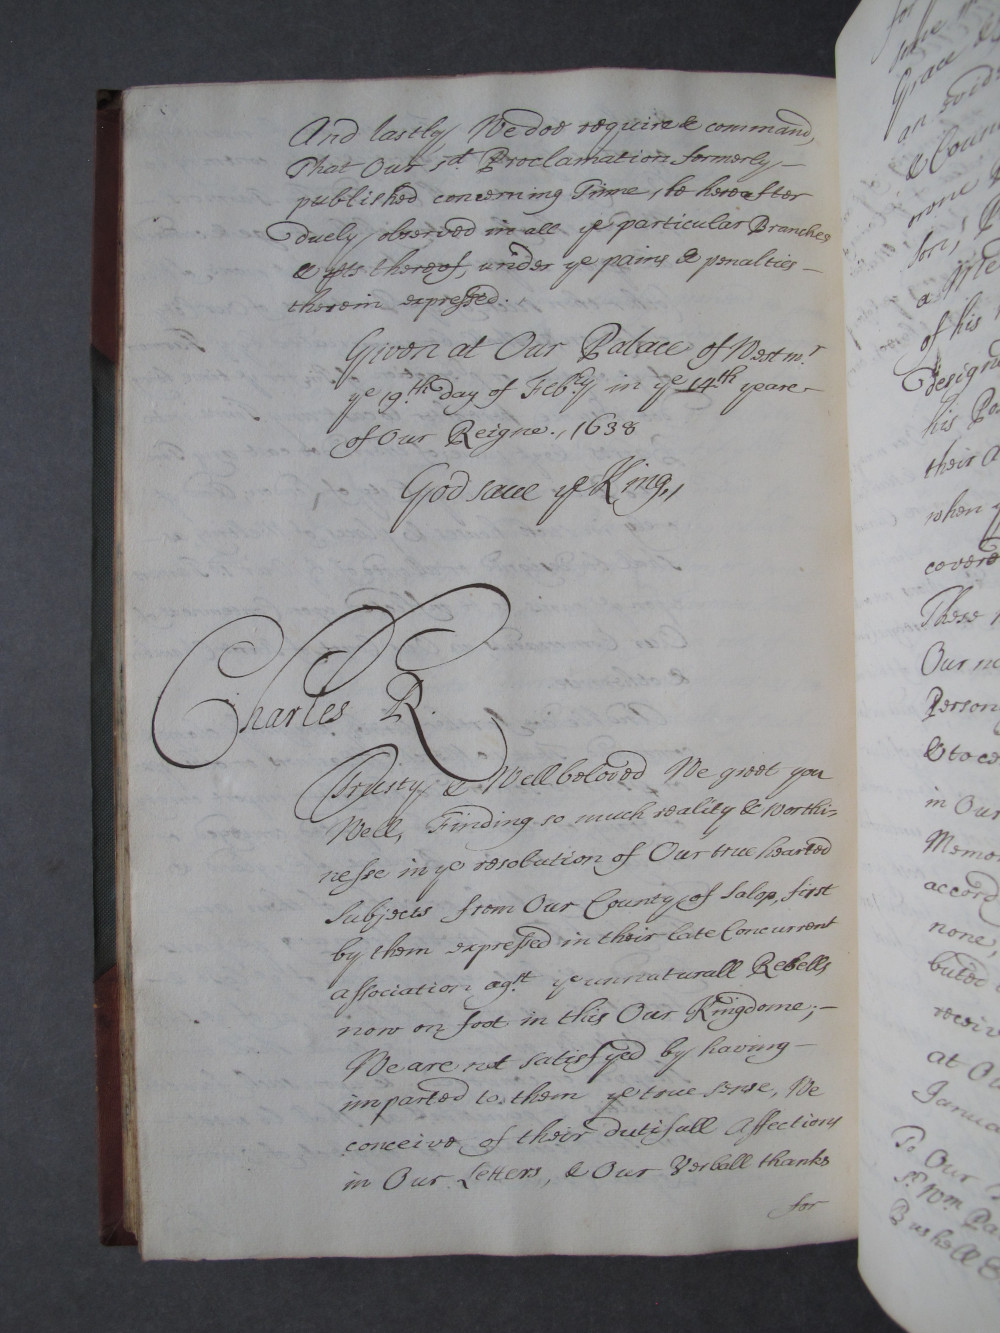 And lastly We doe require & command,
That Our sd. Proclamation formerly –
published concerning Tinne, be hereafter
duely observed in all ye particular Branches
& pts thereof under ye pains & penalties –
therein expressed.
Given at Our Palace of Westmr
ye 19.th day of Feb:ry in ye 14th yeare
of Our Reigne., 1638
God save ye King,
Charles R.
Trusty & Wellbeloved We greet you
Well, Finding so much reality & worthi=
nesse in ye resolution of Our true hearted
Subjects from Our County of Salop, first
by them expressed in their late Concurrent
association agst ye unnaturall Rebells
now on foot in this Our Kingdome; –
We are not satisfyed by having –
imparted to them ye true sense, We
conceive of their dutifull Affections
in Our Letters, & Our Verball thanks
for
for
Grace &
an evid
& Coun
more
for,
a
of his
designe
his Pa
their a
when y
covere
These
Our no
Person
& to co
in Our
Memo
accord
none,
buted
receiv
at Ou
Janua
To Our
Sr. Wm. Pa
Bushell E